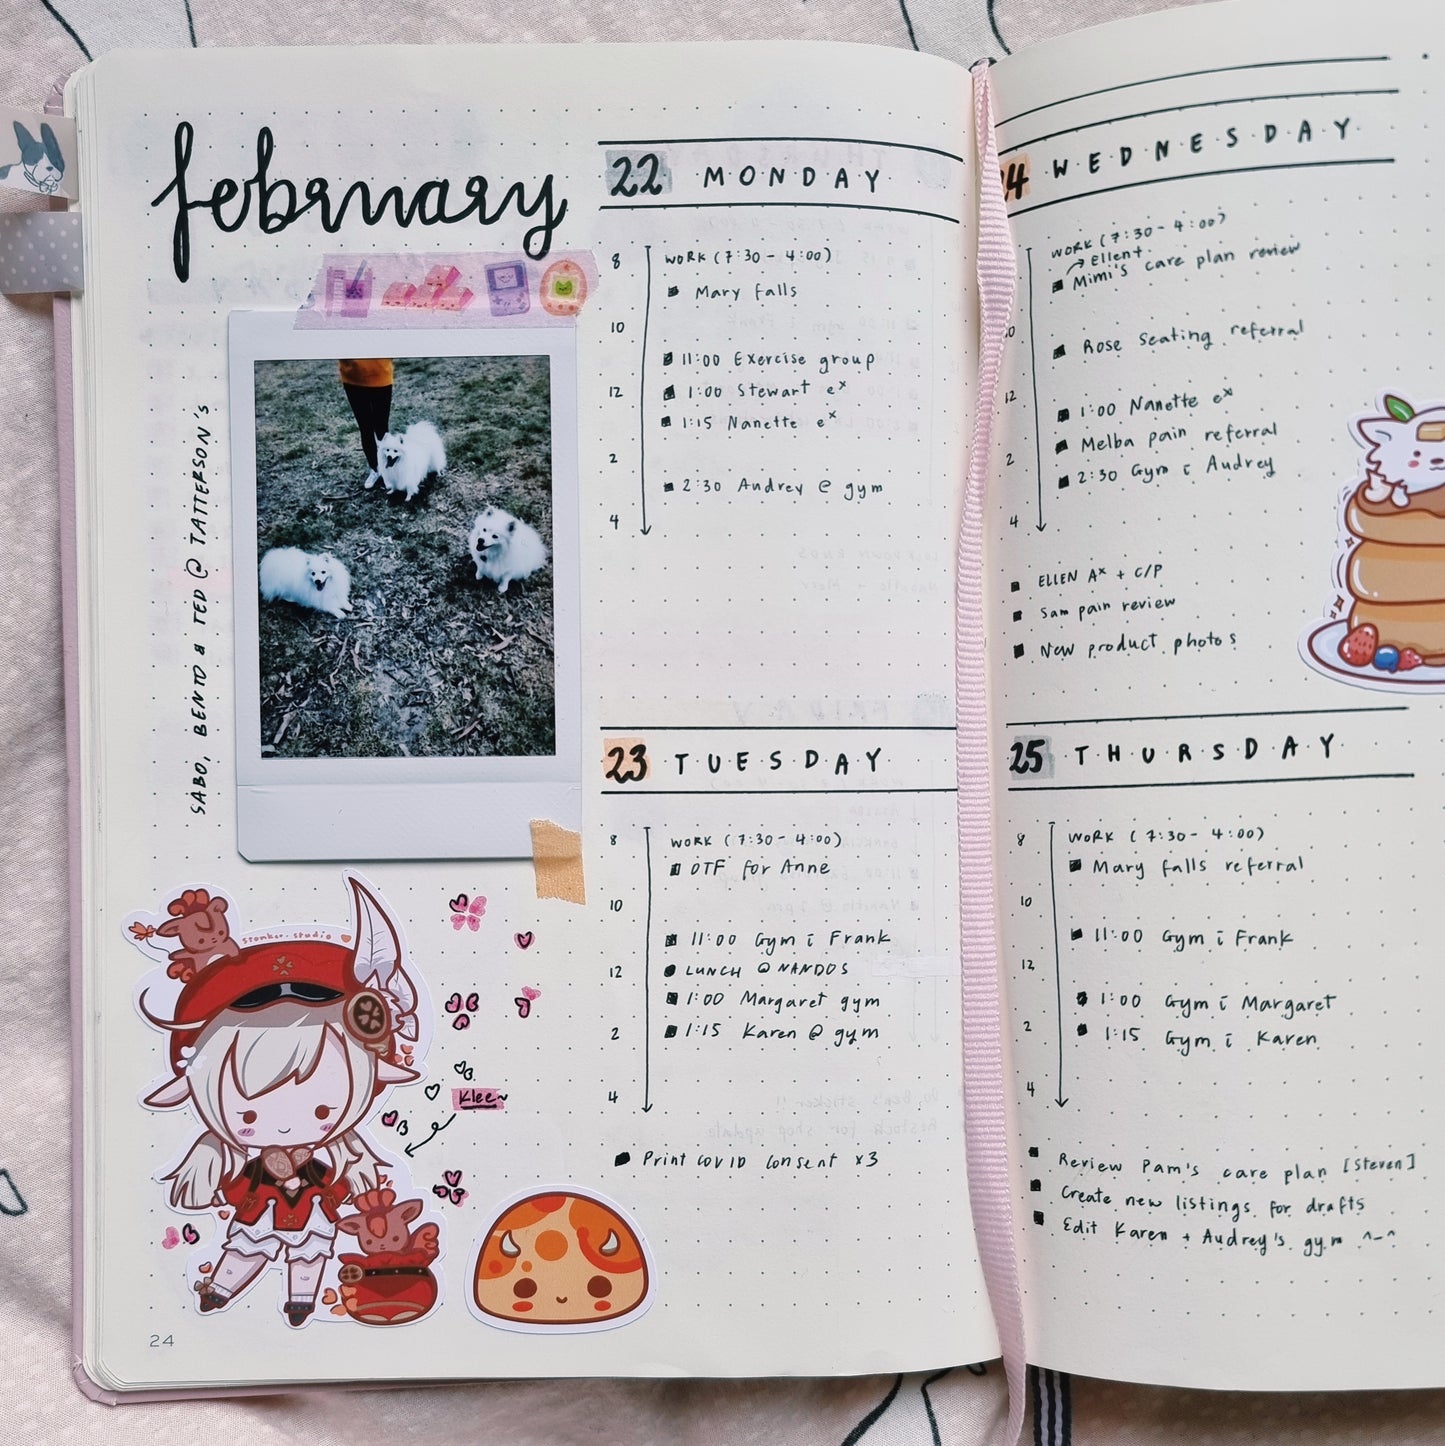 february
SABO, BENTO & TED @ TATTERSON'S
stonker.studio
Klee~
24
22 MONDAY
8
10
12
2
4
WORK (7:30 - 4:00)
Mary falls
11:00 Exercise group
1:00 Stewart eˣ
1:15 Nanette eˣ
2:30 Audrey @ gym
23 TUESDAY
8
10
12
2
4
WORK (7:30 - 4:00)
OTF for Anne
11:00 Gym c̄ Frank
LUNCH @ NANDOS
1:00 Margaret gym
1:15 Karen @ gym
Print COVID consent x3
24 WEDNESDAY
10
12
2
4
WORK (7:30 - 4:00)
Ellen+
Mimi's care plan review
Rose seating referral
1:00 Nanette eˣ
Melba pain referral
2:30 Gym c̄ Audrey
ELLEN Aˣ + C/P
Sam pain review
New product photos
25 THURSDAY
8
10
12
2
4
WORK (7:30 - 4:00)
Mary falls referral
11:00 Gym c̄ Frank
1:00 Gym c̄ Margaret
1:15 Gym c̄ Karen
Review Pam's care plan [Steven]
Create new listings for drafts
Edit Karen + Audrey's gym ^-^